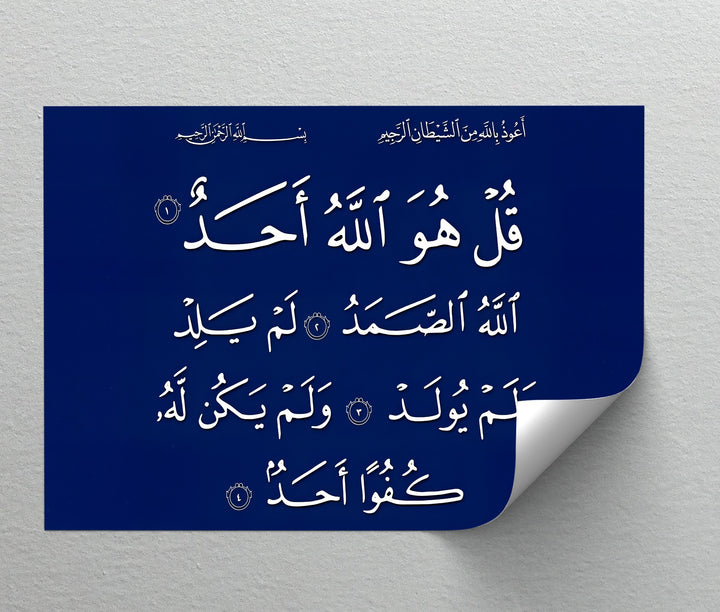 أَعُوذُ بِٱللَّهِ مِنَ ٱلشَّيْطَانِ ٱلرَّجِيمِ بِسْمِ ٱللَّهِ ٱلرَّحْمَٰنِ ٱلرَّحِيمِ
قُلْ هُوَ ٱللَّهُ أَحَدٌ ١
ٱللَّهُ ٱلصَّمَدُ ٢ لَمْ يَلِدْ
وَلَمْ يُولَدْ ٣ وَلَمْ يَكُن لَّهُۥ
كُفُوًا أَحَدٌۢ ٤